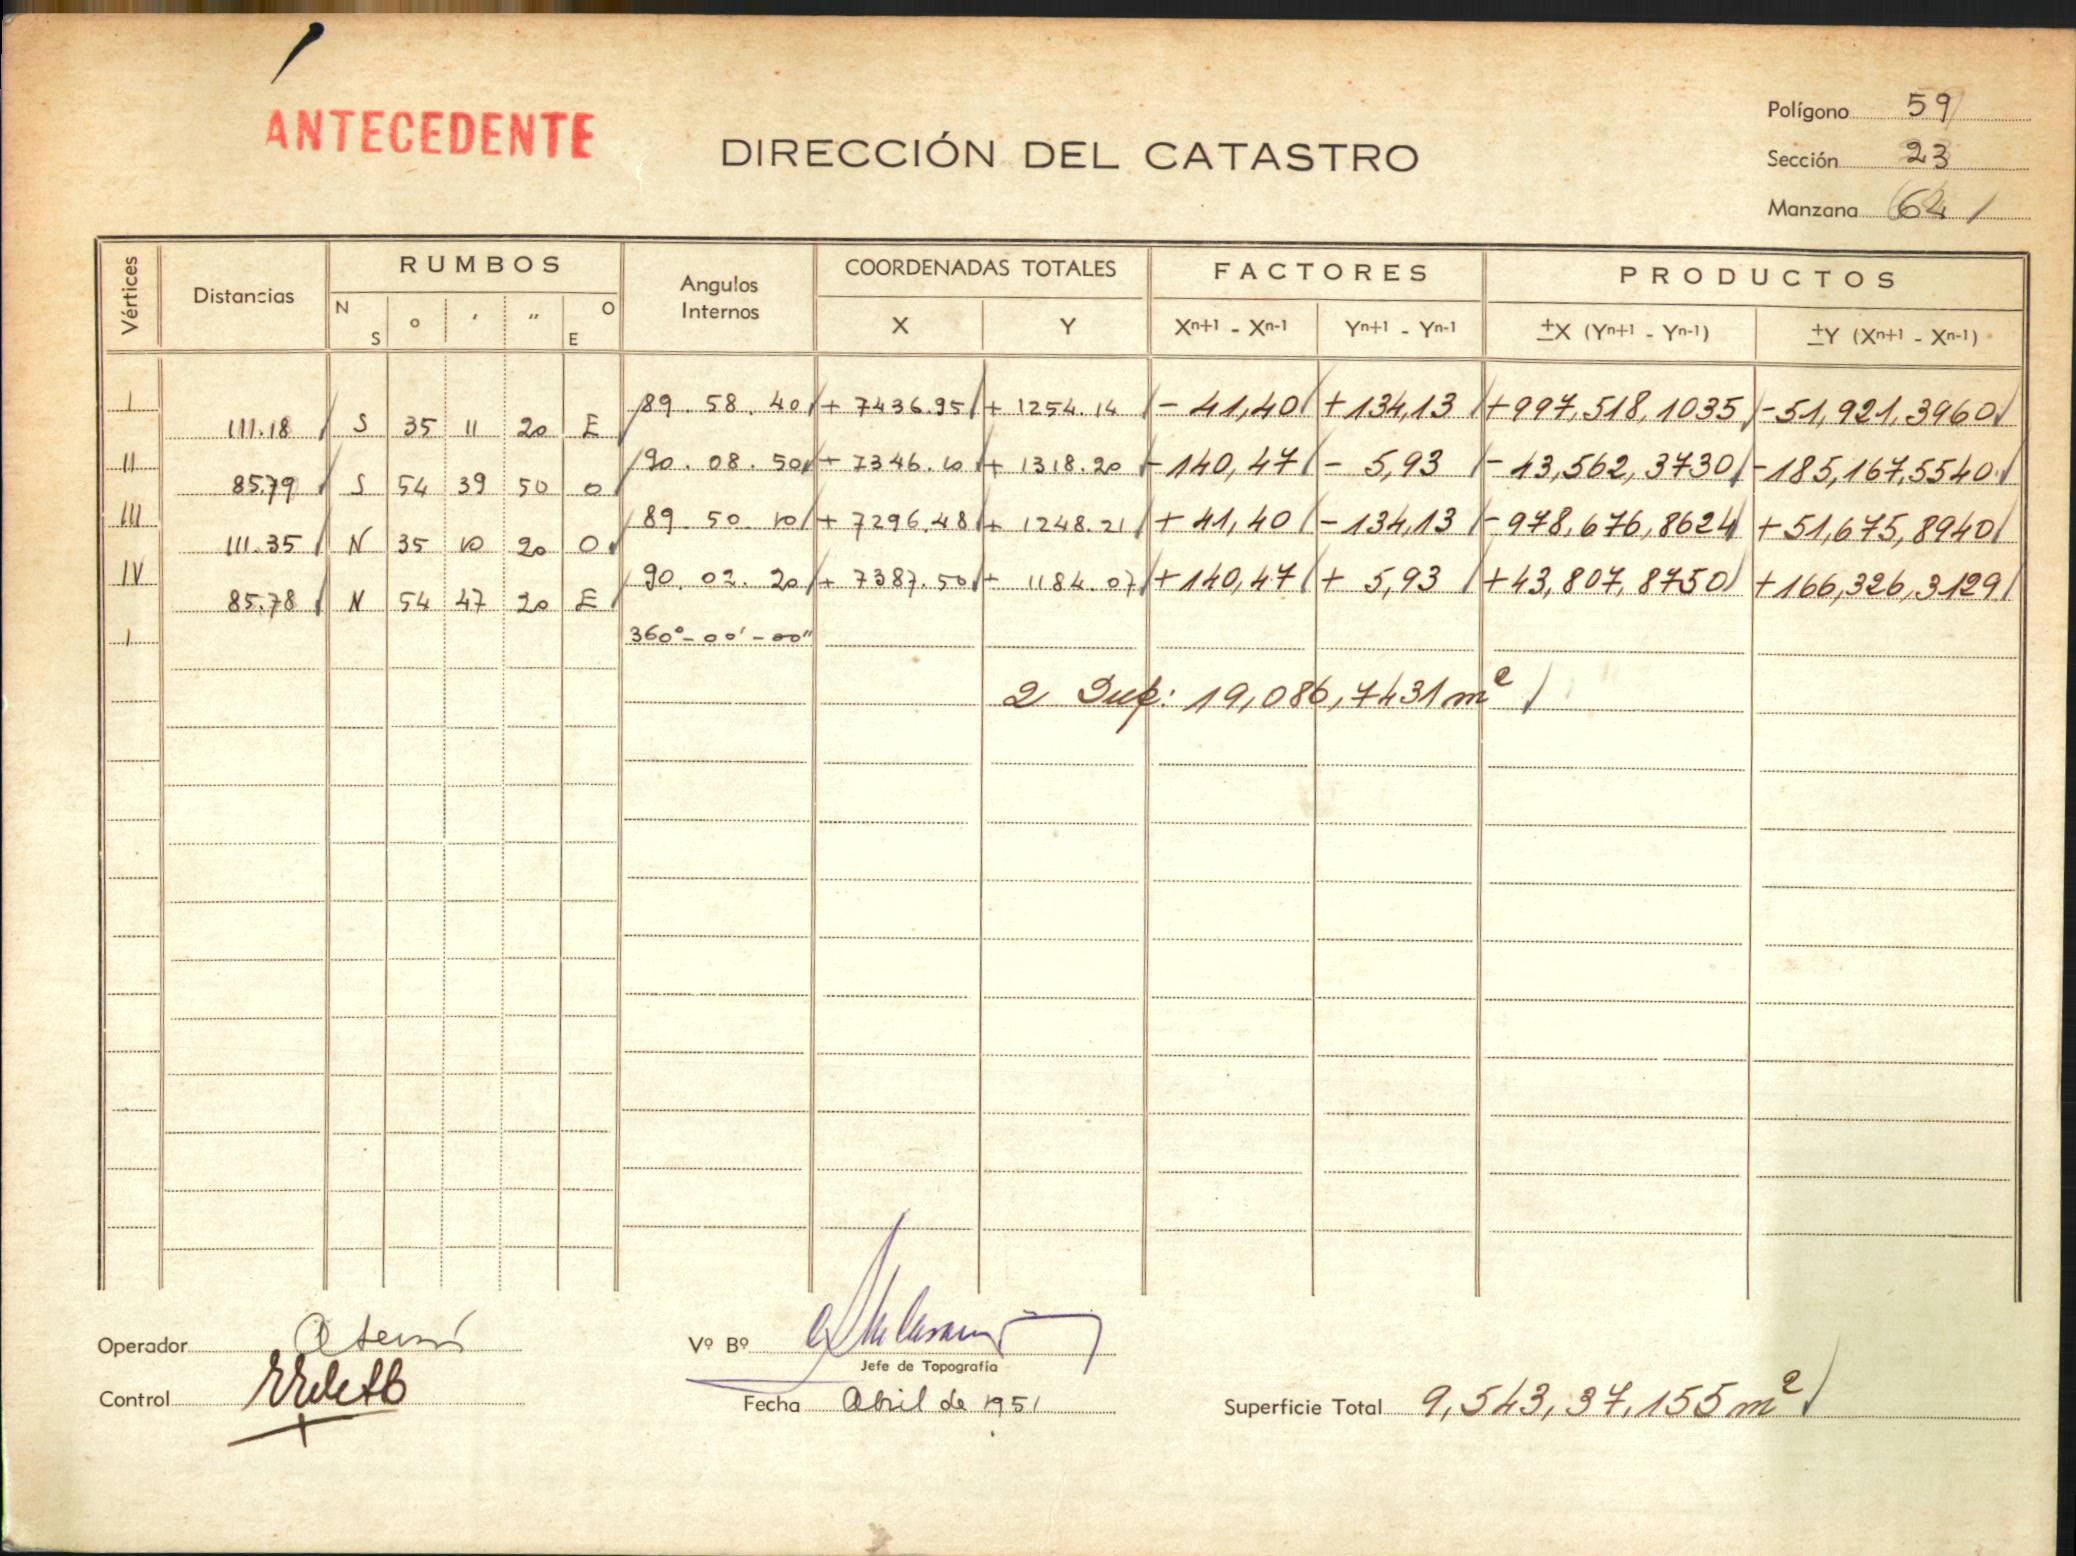 ANTECEDENTE
DIRECCIÓN DEL CATASTRO
Polígono 59
Sección 23
Manzana 64
Vértices Distancias RUMBOS Angulos Internos COORDENADAS TOTALES FACTORES PRODUCTOS
N S ° ' " O E X Y Xn+1 - Xn-1 Yn+1 - Yn-1 ±X (Yn+1 - Yn-1) ±Y (Xn+1 - Xn-1)
I 89. 58. 40 + 7436.95 + 1254.14 - 41,40 + 134,13 + 997,518,1035 - 51,921,3960
111.18 S 35 11 20 E
II 90. 08. 50 + 7346.10 + 1318.20 - 140,47 - 5,93 - 43,562,3730 - 185,167,5540
85.79 S 54 39 50 O
III 89. 50. 10 + 7296.48 + 1248.21 + 41,40 - 134,13 - 978,676,8624 + 51,675,8940
111.35 N 35 10 20 O
IV 90. 02. 20 + 7387.50 + 1184.07 + 140,47 + 5,93 + 43,807,8750 + 166,326,3129
85.78 N 54 47 20 E
I 360°-00'-00"
2 Sup: 19,086,7431 m²
Operador
Vº Bº
Jefe de Topografía
Control
Fecha Abril de 1951
Superficie Total 9,543,37,155 m²